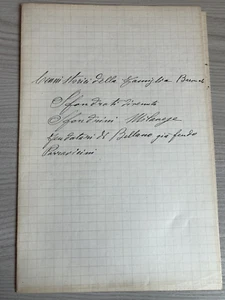 Cenni Storici della Famiglia
Sfondrati divenuti
Sfondrini Milanese
feudatari di Bellano già feudo